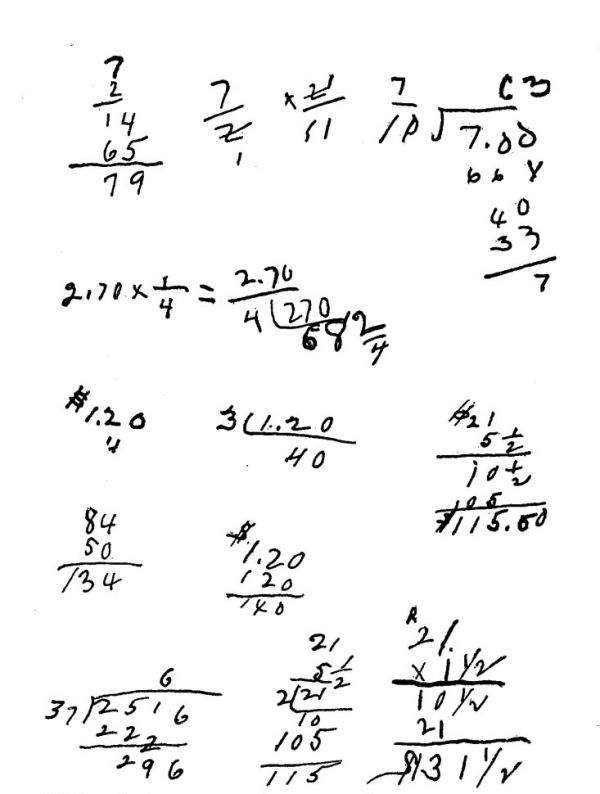 7
2
14
65
79
7/2 × 21/11
1
7
18 √7.00
63
66
40
33
7
2.70 × 1/4 = 2.70
4 (270
68 2/4
$1.20
4
3 (1.20
40
$21
5 1/2
10 1/2
105
$115.50
84
50
134
$1.20
120
140
6
37 √2516
222
296
21
5 1/2
2 (21
10
105
115
21.
× 1 1/2
10 1/2
21
$131 1/2